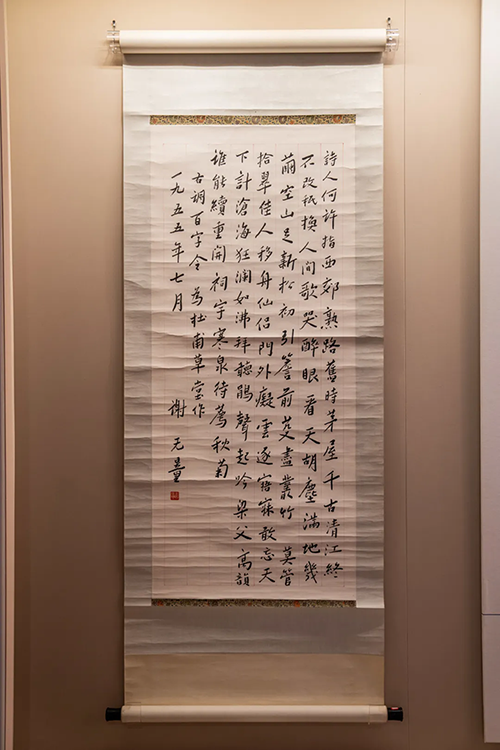 詩人何許指西郊熟路舊時茅屋千古清江終
不改祇換人間歌哭醉眼看天胡塵滿地幾
繭空山足新松初引簷前芟盡叢竹 莫管
拾翠佳人移舟仙侶門外癡雲逐寤寐敢忘天
下計滄海狂瀾如沸拜聽鵑聲起吟梁父高韻
誰能續重開祠宇寒泉待薦秋菊
古調百字令 為杜甫草堂作
一九五五年七月 謝无量